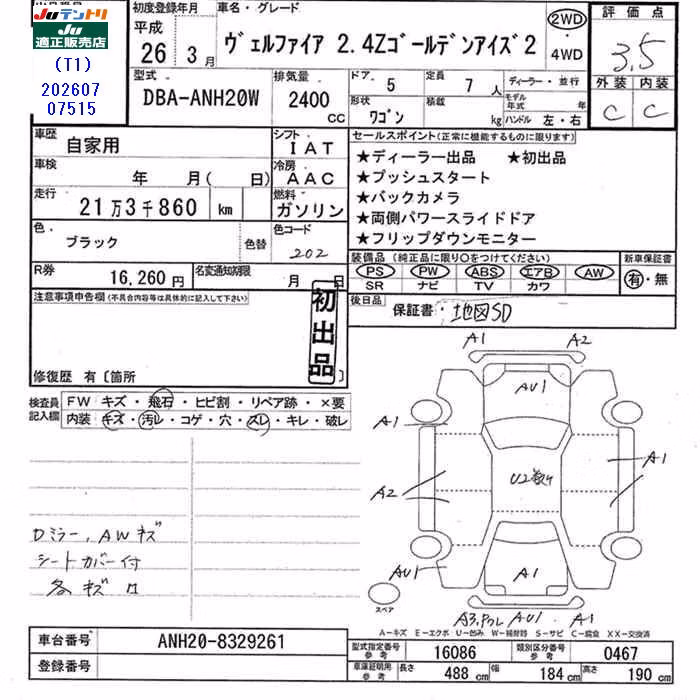 出品店番号
Juテントリ
Ju適正販売店
(T1)
202607
07515
初度登録年月
平成
26 3月
車名・グレード
ヴェルファイア 2.4Zゴールデンアイズ2
2WD
・
4WD
評価点
3.5
外装 内装
C C
型式
DBA-ANH20W
排気量
2400
cc
ドア・ 5
形状
ワゴン
定員 7 人
積載 kg
ディーラー・並行
モデル年式 年
ハンドル 左・右
車歴 自家用
シフト・
IAT
車検 年 月( 日)
冷房
AAC
走行 21万3千860 km
燃料・
ガソリン
色・
ブラック
色替
色コード
202
R券 16,260円
名変通知期限 月 日
セールスポイント(正常に機能するものに限ります)
★ディーラー出品 ★初出品
★プッシュスタート
★バックカメラ
★両側パワースライドドア
★フリップダウンモニター
装備品(純正品に限り○をつけてください)
PS PW ABS エアB AW
SR ナビ TV カワ
新車保証書
有・無
後日品
保証書・地図SD
注意事項申告欄(不具合内容等は具体的に記入して下さい)
初出品
修復歴 有〔箇所 〕
検査員記入欄
FW キズ・飛石・ヒビ割・リペア跡・×要
内装 キズ・汚レ・コゲ・穴・スレ・キレ・破レ
Dミラー,AWキズ
シートカバー付
各キズ
A1 A2
AU1
A1
A1
A2
U2
AU1
A1
AU1 A1
スペア
A-キズ E-エクボ U-凹み W-補修跡 S-サビ C-腐食 XX-交換済
車台番号 ANH20-8329261
登録番号
型式指定番号 参考 16086
類別区分番号 参考 0467
車庫証明用 参考 長さ 488 cm 幅 184 cm 高さ 190 cm